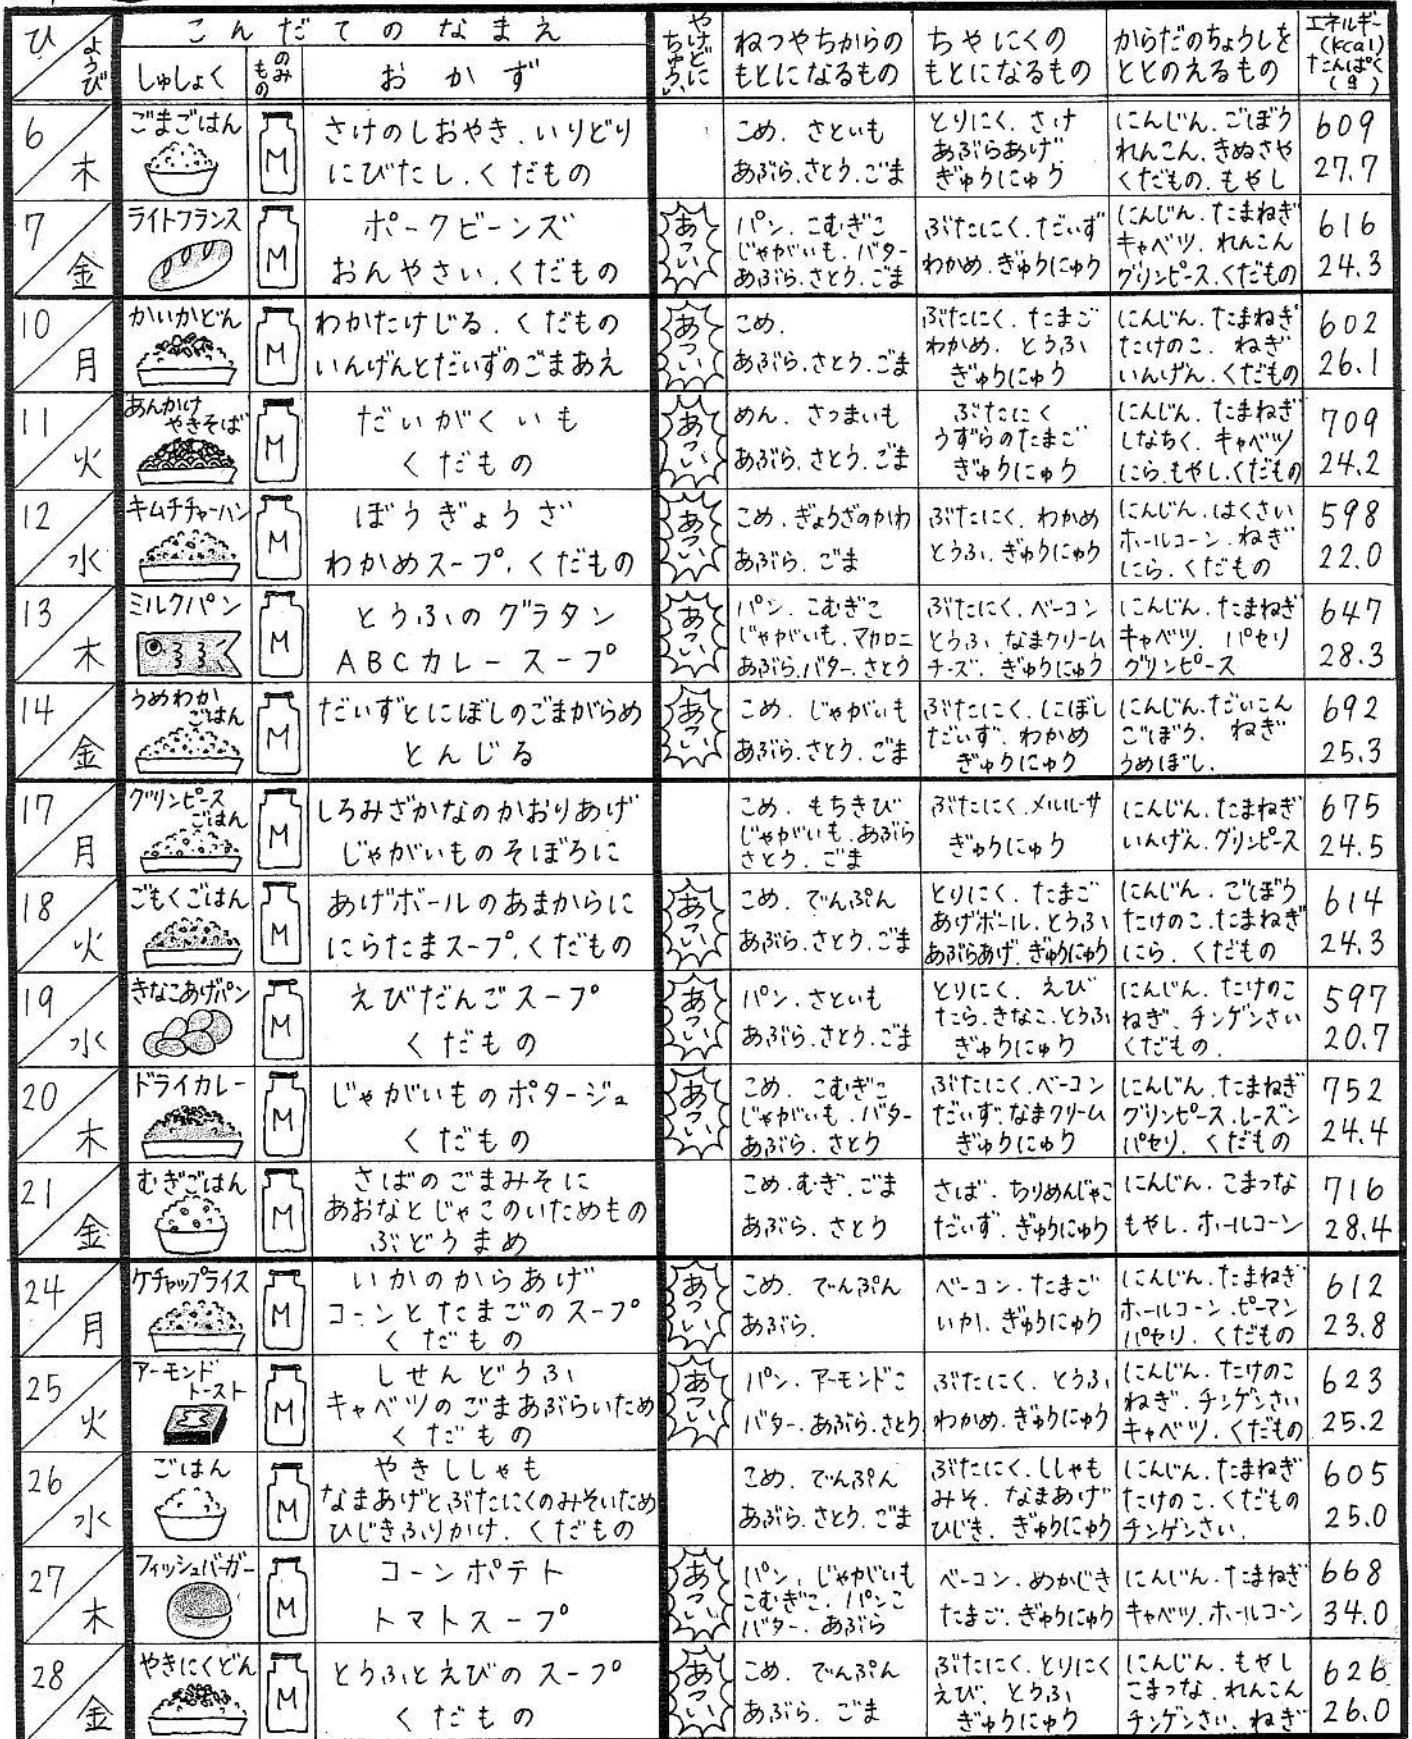 ひ ようび
こんだてのなまえ
しゅしょく
のみもの
おかず
やけどにちゅうい
ねつやちからの
もとになるもの
ちやにくの
もとになるもの
からだのちょうしを
ととのえるもの
エネルギー
(Kcal)
たんぱく
(g)
6 木
ごまごはん
M
さけのしおやき.いりどり
にびたし.くだもの
こめ. さといも
あぶら.さとう.ごま
とりにく. さけ
あぶらあげ.
ぎゅうにゅう
にんじん.ごぼう
れんこん.きぬさや
くだもの.もやし
609
27.7
7 金
ライトフランス
M
ポークビーンズ
おんやさい.くだもの
あつい
パン. こむぎこ
じゃがいも.バター
あぶら.さとう.ごま
ぶたにく.だいず
わかめ.ぎゅうにゅう
にんじん.たまねぎ
キャベツ.れんこん
グリンピース.くだもの
616
24.3
10 月
かいかどん
M
わかたけじる.くだもの
いんげんとだいずのごまあえ
あつい
こめ.
あぶら.さとう.ごま
ぶたにく.たまご
わかめ. とうふ
ぎゅうにゅう
にんじん.たまねぎ
たけのこ. ねぎ
いんげん.くだもの
602
26.1
11 火
あんかけ
やきそば
M
だいがくいも
くだもの
あつい
めん. さつまいも
あぶら.さとう.ごま
ぶたにく
うずらのたまご
ぎゅうにゅう
にんじん.たまねぎ
しなちく.キャベツ
にら.もやし.くだもの
709
24.2
12 水
キムチチャーハン
M
ぼうぎょうざ
わかめスープ.くだもの
あつい
こめ.ぎょうざのかわ
あぶら.ごま
ぶたにく.わかめ
とうふ.ぎゅうにゅう
にんじん.はくさい
ホールコーン.ねぎ
にら.くだもの
598
22.0
13 木
ミルクパン
M
とうふのグラタン
ABCカレースープ
あつい
パン. こむぎこ
じゃがいも.マカロニ
あぶら.バター.さとう
ぶたにく.ベーコン
とうふ.なまクリーム
チーズ. ぎゅうにゅう
にんじん.たまねぎ
キャベツ. パセリ
グリンピース
647
28.3
14 金
うめわか
ごはん
M
だいずとにぼしのごまがらめ
とんじる
あつい
こめ.じゃがいも
あぶら.さとう.ごま
ぶたにく.にぼし
だいず.わかめ
ぎゅうにゅう
にんじん.だいこん
ごぼう. ねぎ
うめぼし.
692
25.3
17 月
グリンピース
ごはん
M
しろみざかなのかおりあげ
じゃがいものそぼろに
こめ. もちきび
じゃがいも.あぶら
さとう.ごま
ぶたにく.メルルーサ
ぎゅうにゅう
にんじん.たまねぎ
いんげん.グリンピース
675
24.5
18 火
ごもくごはん
M
あげボールのあまからに
にらたまスープ.くだもの
あつい
こめ. でんぷん
あぶら.さとう.ごま
とりにく. たまご
あげボール.とうふ
あぶらあげ.ぎゅうにゅう
にんじん. ごぼう
たけのこ.たまねぎ
にら. くだもの
614
24.3
19 水
きなこあげパン
M
えびだんごスープ
くだもの
あつい
パン.さといも
あぶら.さとう.ごま
とりにく. えび
たら.きなこ.とうふ
ぎゅうにゅう
にんじん.たけのこ
ねぎ.チンゲンさい
くだもの.
597
20.7
20 木
ドライカレー
M
じゃがいものポタージュ
くだもの
あつい
こめ. こむぎこ
じゃがいも.バター
あぶら.さとう
ぶたにく.ベーコン
だいず.なまクリーム
ぎゅうにゅう
にんじん.たまねぎ
グリンピース.レーズン
パセリ. くだもの
752
24.4
21 金
むぎごはん
M
さばのごまみそに
あおなとじゃこのいためもの
ぶどうまめ
こめ.むぎ.ごま
あぶら.さとう
さば. ちりめんじゃこ
だいず.ぎゅうにゅう
にんじん.こまつな
もやし.ホールコーン
716
28.4
24 月
ケチャップライス
M
いかのからあげ
コーンとたまごのスープ
くだもの
あつい
こめ. でんぷん
あぶら.
ベーコン.たまご
いか.ぎゅうにゅう
にんじん.たまねぎ
ホールコーン.ピーマン
パセリ. くだもの
612
23.8
25 火
アーモンド
トースト
M
しせんどうふ
キャベツのごまあぶらいため
くだもの
あつい
パン.アーモンドこ
バター.あぶら.さとう
ぶたにく. とうふ
わかめ.ぎゅうにゅう
にんじん.たけのこ
ねぎ.チンゲンさい
キャベツ.くだもの
623
25.2
26 水
ごはん
M
やきししゃも
なまあげとぶたにくのみそいため
ひじきふりかけ.くだもの
こめ. でんぷん
あぶら.さとう.ごま
ぶたにく.ししゃも
みそ. なまあげ
ひじき. ぎゅうにゅう
にんじん.たまねぎ
たけのこ.くだもの
チンゲンさい.
605
25.0
27 木
フィッシュバーガー
M
コーンポテト
トマトスープ
あつい
パン. じゃがいも
こむぎこ. パンこ
バター. あぶら
ベーコン.めかじき
たまご.ぎゅうにゅう
にんじん.たまねぎ
キャベツ.ホールコーン
668
34.0
28 金
やきにくどん
M
とうふとえびのスープ
くだもの
あつい
こめ. でんぷん
あぶら. ごま
ぶたにく.とりにく
えび. とうふ
ぎゅうにゅう
にんじん.もやし
こまつな.れんこん
チンゲンさい.ねぎ
626
26.0